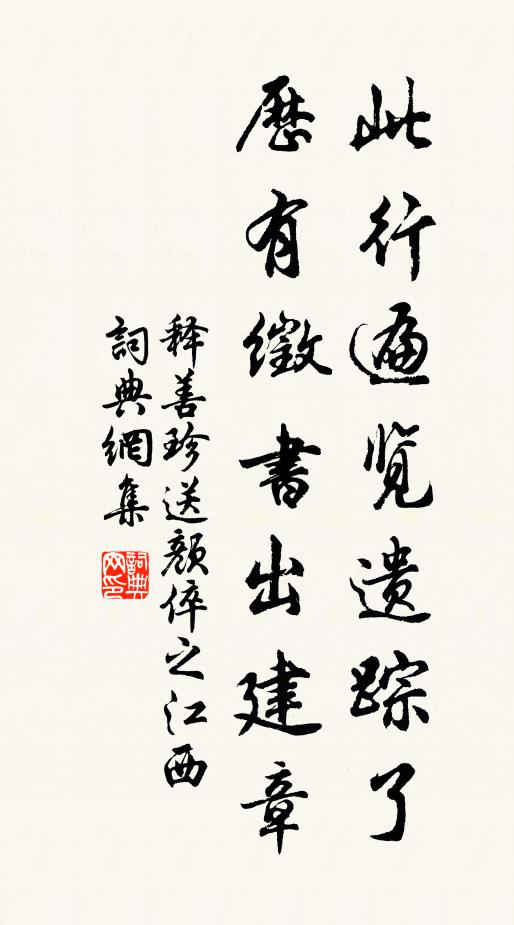 此行遍览遗踪了
歷有徵書出建章
释善珍送顏倅之江西
詞典網集
詞典
网印